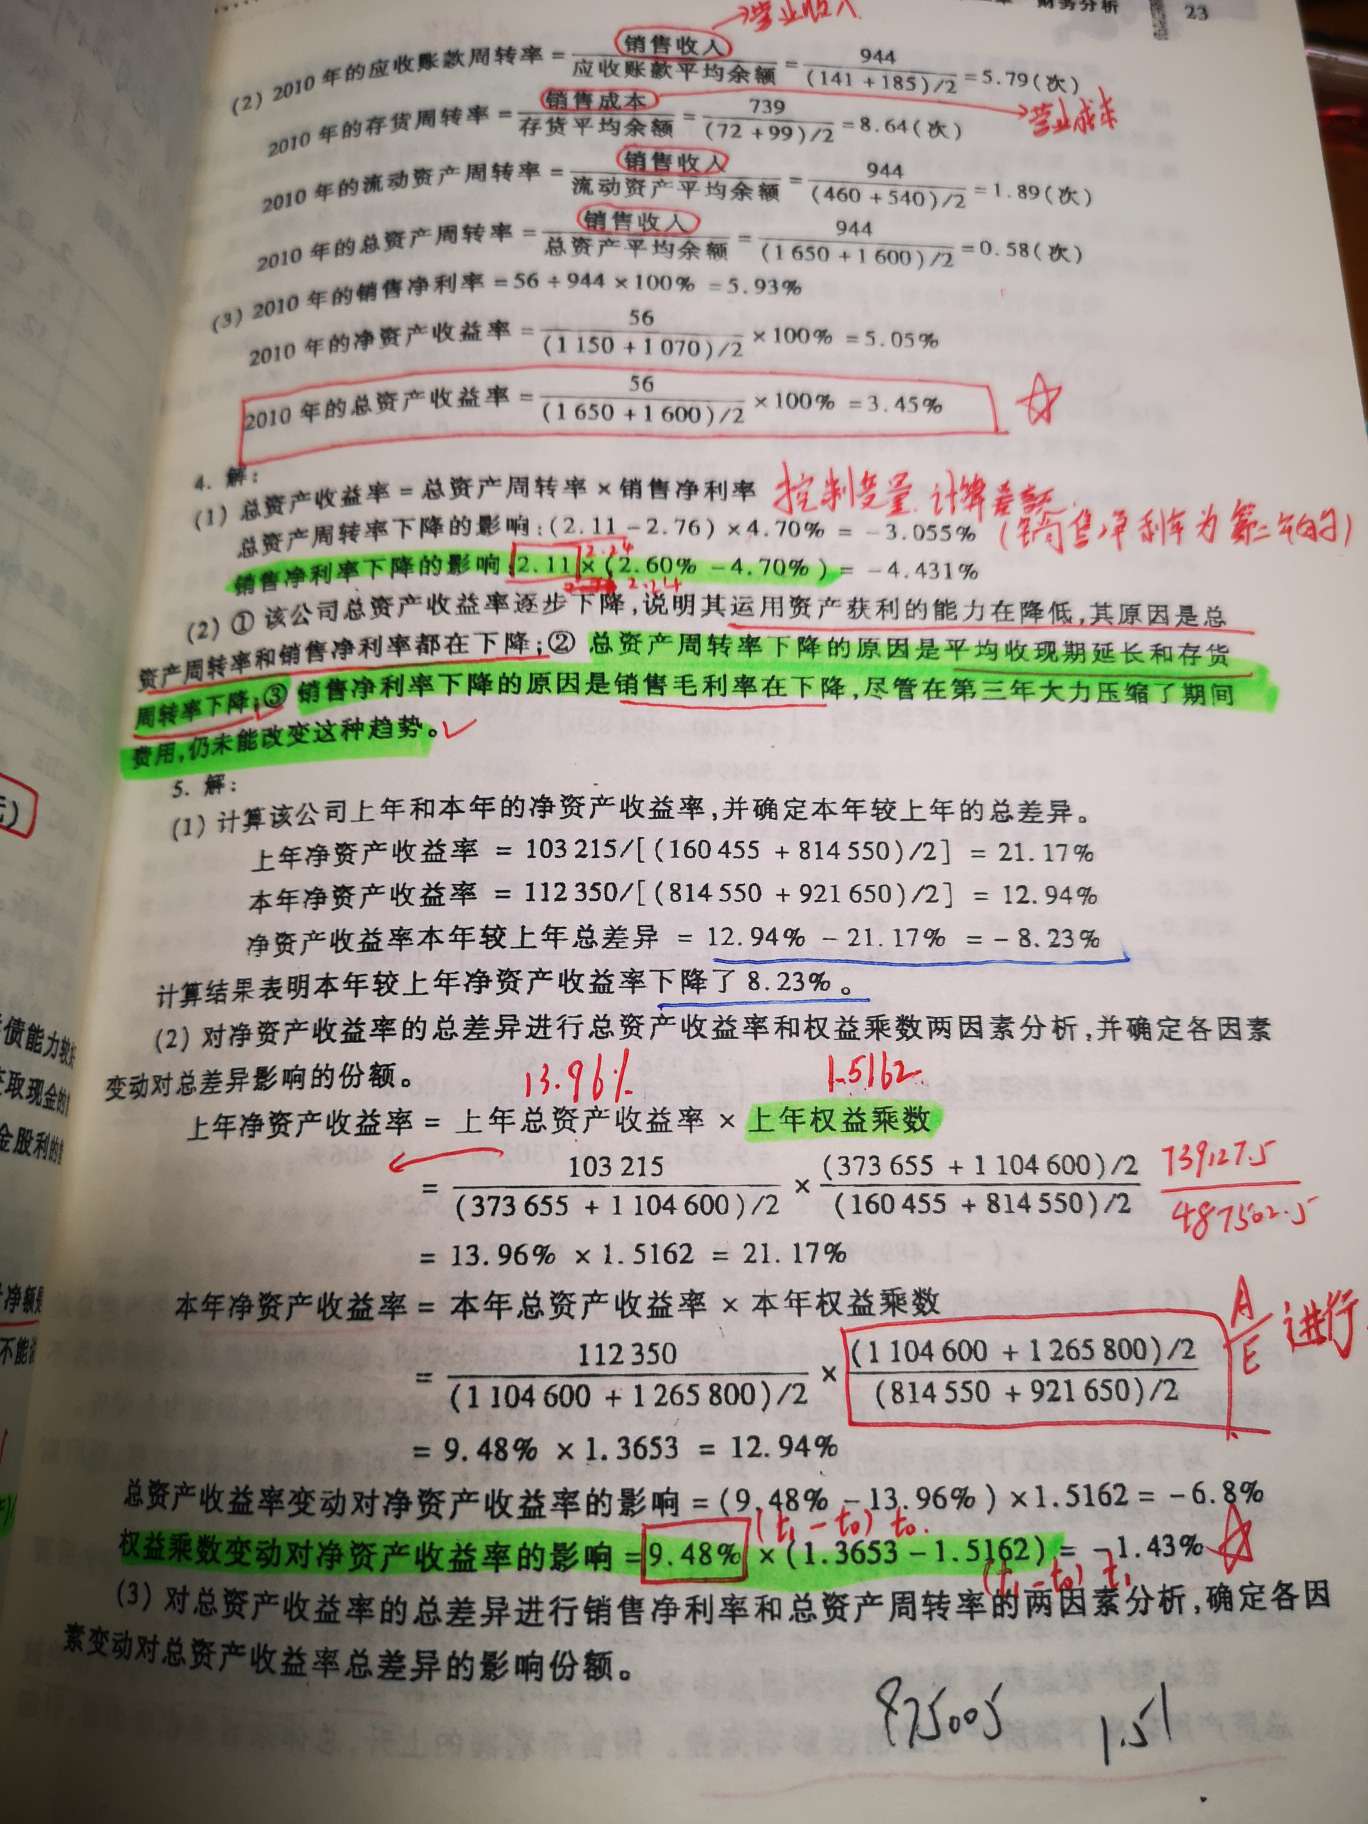 财务分析 23
营业收入
(2) 2010 年的应收账款周转率 = 销售收入/应收账款平均余额 = 944/(141 + 185)/2 = 5.79(次)
2010 年的存货周转率 = 销售成本/存货平均余额 = 739/(72 + 99)/2 = 8.64(次) 营业成本
2010 年的流动资产周转率 = 销售收入/流动资产平均余额 = 944/(460 + 540)/2 = 1.89(次)
2010 年的总资产周转率 = 销售收入/总资产平均余额 = 944/(1 650 + 1 600)/2 = 0.58(次)
(3) 2010 年的销售净利率 = 56 ÷ 944 × 100% = 5.93%
2010 年的净资产收益率 = 56/(1 150 + 1 070)/2 × 100% = 5.05%
2010 年的总资产收益率 = 56/(1 650 + 1 600)/2 × 100% = 3.45%
4. 解:
(1) 总资产收益率 = 总资产周转率 × 销售净利率 控制变量 计算差额
总资产周转率下降的影响:(2.11 - 2.76) × 4.70% = - 3.055% (销售净利率为第二年的)
2.24
销售净利率下降的影响 2.11 × (2.60% - 4.70%) = - 4.431%
2.24
(2) ① 该公司总资产收益率逐步下降,说明其运用资产获利的能力在降低,其原因是总
资产周转率和销售净利率都在下降;② 总资产周转率下降的原因是平均收现期延长和存货
周转率下降;③ 销售净利率下降的原因是销售毛利率在下降,尽管在第三年大力压缩了期间
费用,仍未能改变这种趋势。
5. 解:
(1) 计算该公司上年和本年的净资产收益率,并确定本年较上年的总差异。
上年净资产收益率 = 103 215/[(160 455 + 814 550)/2] = 21.17%
本年净资产收益率 = 112 350/[(814 550 + 921 650)/2] = 12.94%
净资产收益率本年较上年总差异 = 12.94% - 21.17% = - 8.23%
计算结果表明本年较上年净资产收益率下降了 8.23%。
(2) 对净资产收益率的总差异进行总资产收益率和权益乘数两因素分析,并确定各因素
变动对总差异影响的份额。
13.96% 1.5162
上年净资产收益率 = 上年总资产收益率 × 上年权益乘数
= 103 215/(373 655 + 1 104 600)/2 × (373 655 + 1 104 600)/2/(160 455 + 814 550)/2 739127.5/487502.5
= 13.96% × 1.5162 = 21.17%
本年净资产收益率 = 本年总资产收益率 × 本年权益乘数
= 112 350/(1 104 600 + 1 265 800)/2 × (1 104 600 + 1 265 800)/2/(814 550 + 921 650)/2 A/E 进行
= 9.48% × 1.3653 = 12.94%
总资产收益率变动对净资产收益率的影响 = (9.48% - 13.96%) × 1.5162 = - 6.8%
(t₁ - t₀) t₀.
权益乘数变动对净资产收益率的影响 = 9.48% × (1.3653 - 1.5162) = - 1.43%
(t₁ - t₀) t₁
(3) 对总资产收益率的总差异进行销售净利率和总资产周转率的两因素分析,确定各因
素变动对总资产收益率总差异的影响份额。
875005 1.51
债能力较
取现金的
金股利的
净额
不能